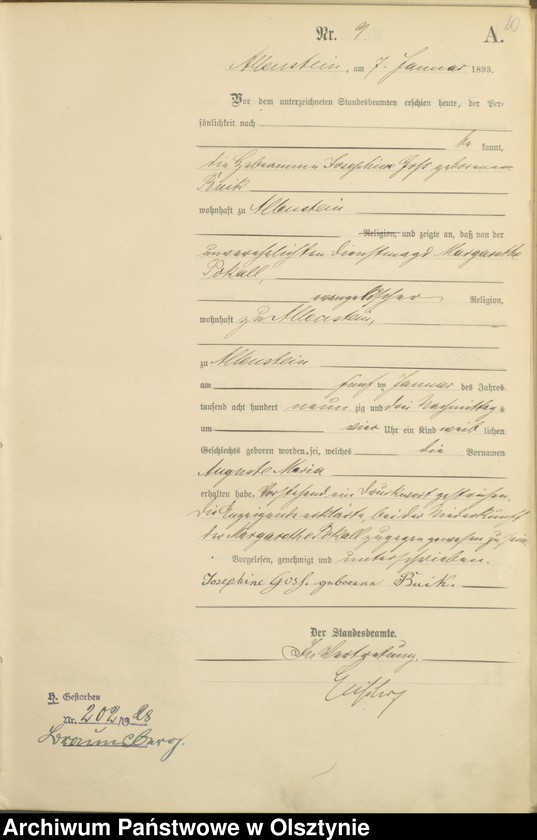 Nr. 9
A.
10
Allenstein, am 7. Januar 1893.
Vor dem unterzeichneten Standesbeamten erschien heute, der Per-
sönlichkeit nach
be kannt,
die Hebeamme Josephine Gosh geborene
Buik
wohnhaft zu Allenstein
Religion, und zeigte an, daß von der
unverehelichten Dienstmagd Margarethe
Pokall,
evangelischer Religion,
wohnhaft zu Allenstein,
zu Allenstein
am fünften Januar des Jahres
tausend acht hundert neun zig und drei Nachmittags
um vier Uhr ein Kind weib lichen
Geschlechts geboren worden sei, welches die Vornamen
Auguste Maria
erhalten habe. Vorstehend ein Druckwort gestrichen.
Die Anzeigende erklärte, bei der Niederkunft
der Margarethe Pokall zugegen gewesen zu sein.
Vorgelesen, genehmigt und unterschrieben.
Josephine Gosh. geborene Buik.
Der Standesbeamte.
In Vertretung.
H. Gestorben
Nr. 202/1928
Braunsberg.
Archiwum Państwowe w Olsztynie